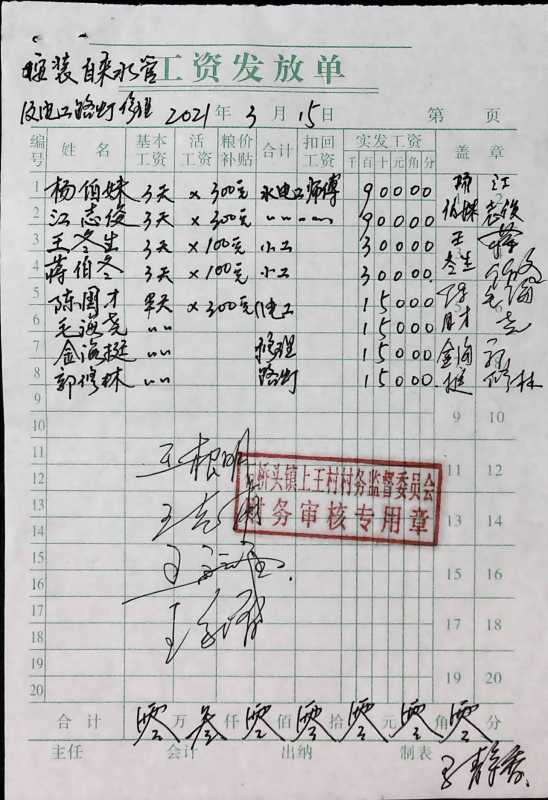 按装自来水管 工资发放单
及电工路灯修理 2021年3月15日 第 页
编号 姓名 基本工资 活工资 粮价补贴 合计 扣回工资 实发工资 千百十元角分 盖章
1 杨伯妹 3天 ×300元 水电工师傅 90000
2 江志俊 3天 ×300元 〃〃 〃〃 90000
3 王冬生 3天 ×100元 小工 30000
4 蒋伯冬 3天 ×100元 小工 30000
5 陈国才 半天 ×300元 电工 15000
6 毛海尧 〃〃 15000
7 金海挺 〃〃 修理 15000
8 郭修林 〃〃 路灯 15000
9 9 10
10
11 11 12
12
13 13 14
14
15 15 16
16
17 17 18
18
19 19 20
20
王根明
桥头镇上王村村务监督委员会
财务审核专用章
合计 零万叁仟零佰零拾零元零角零分
主任 会计 出纳 制表